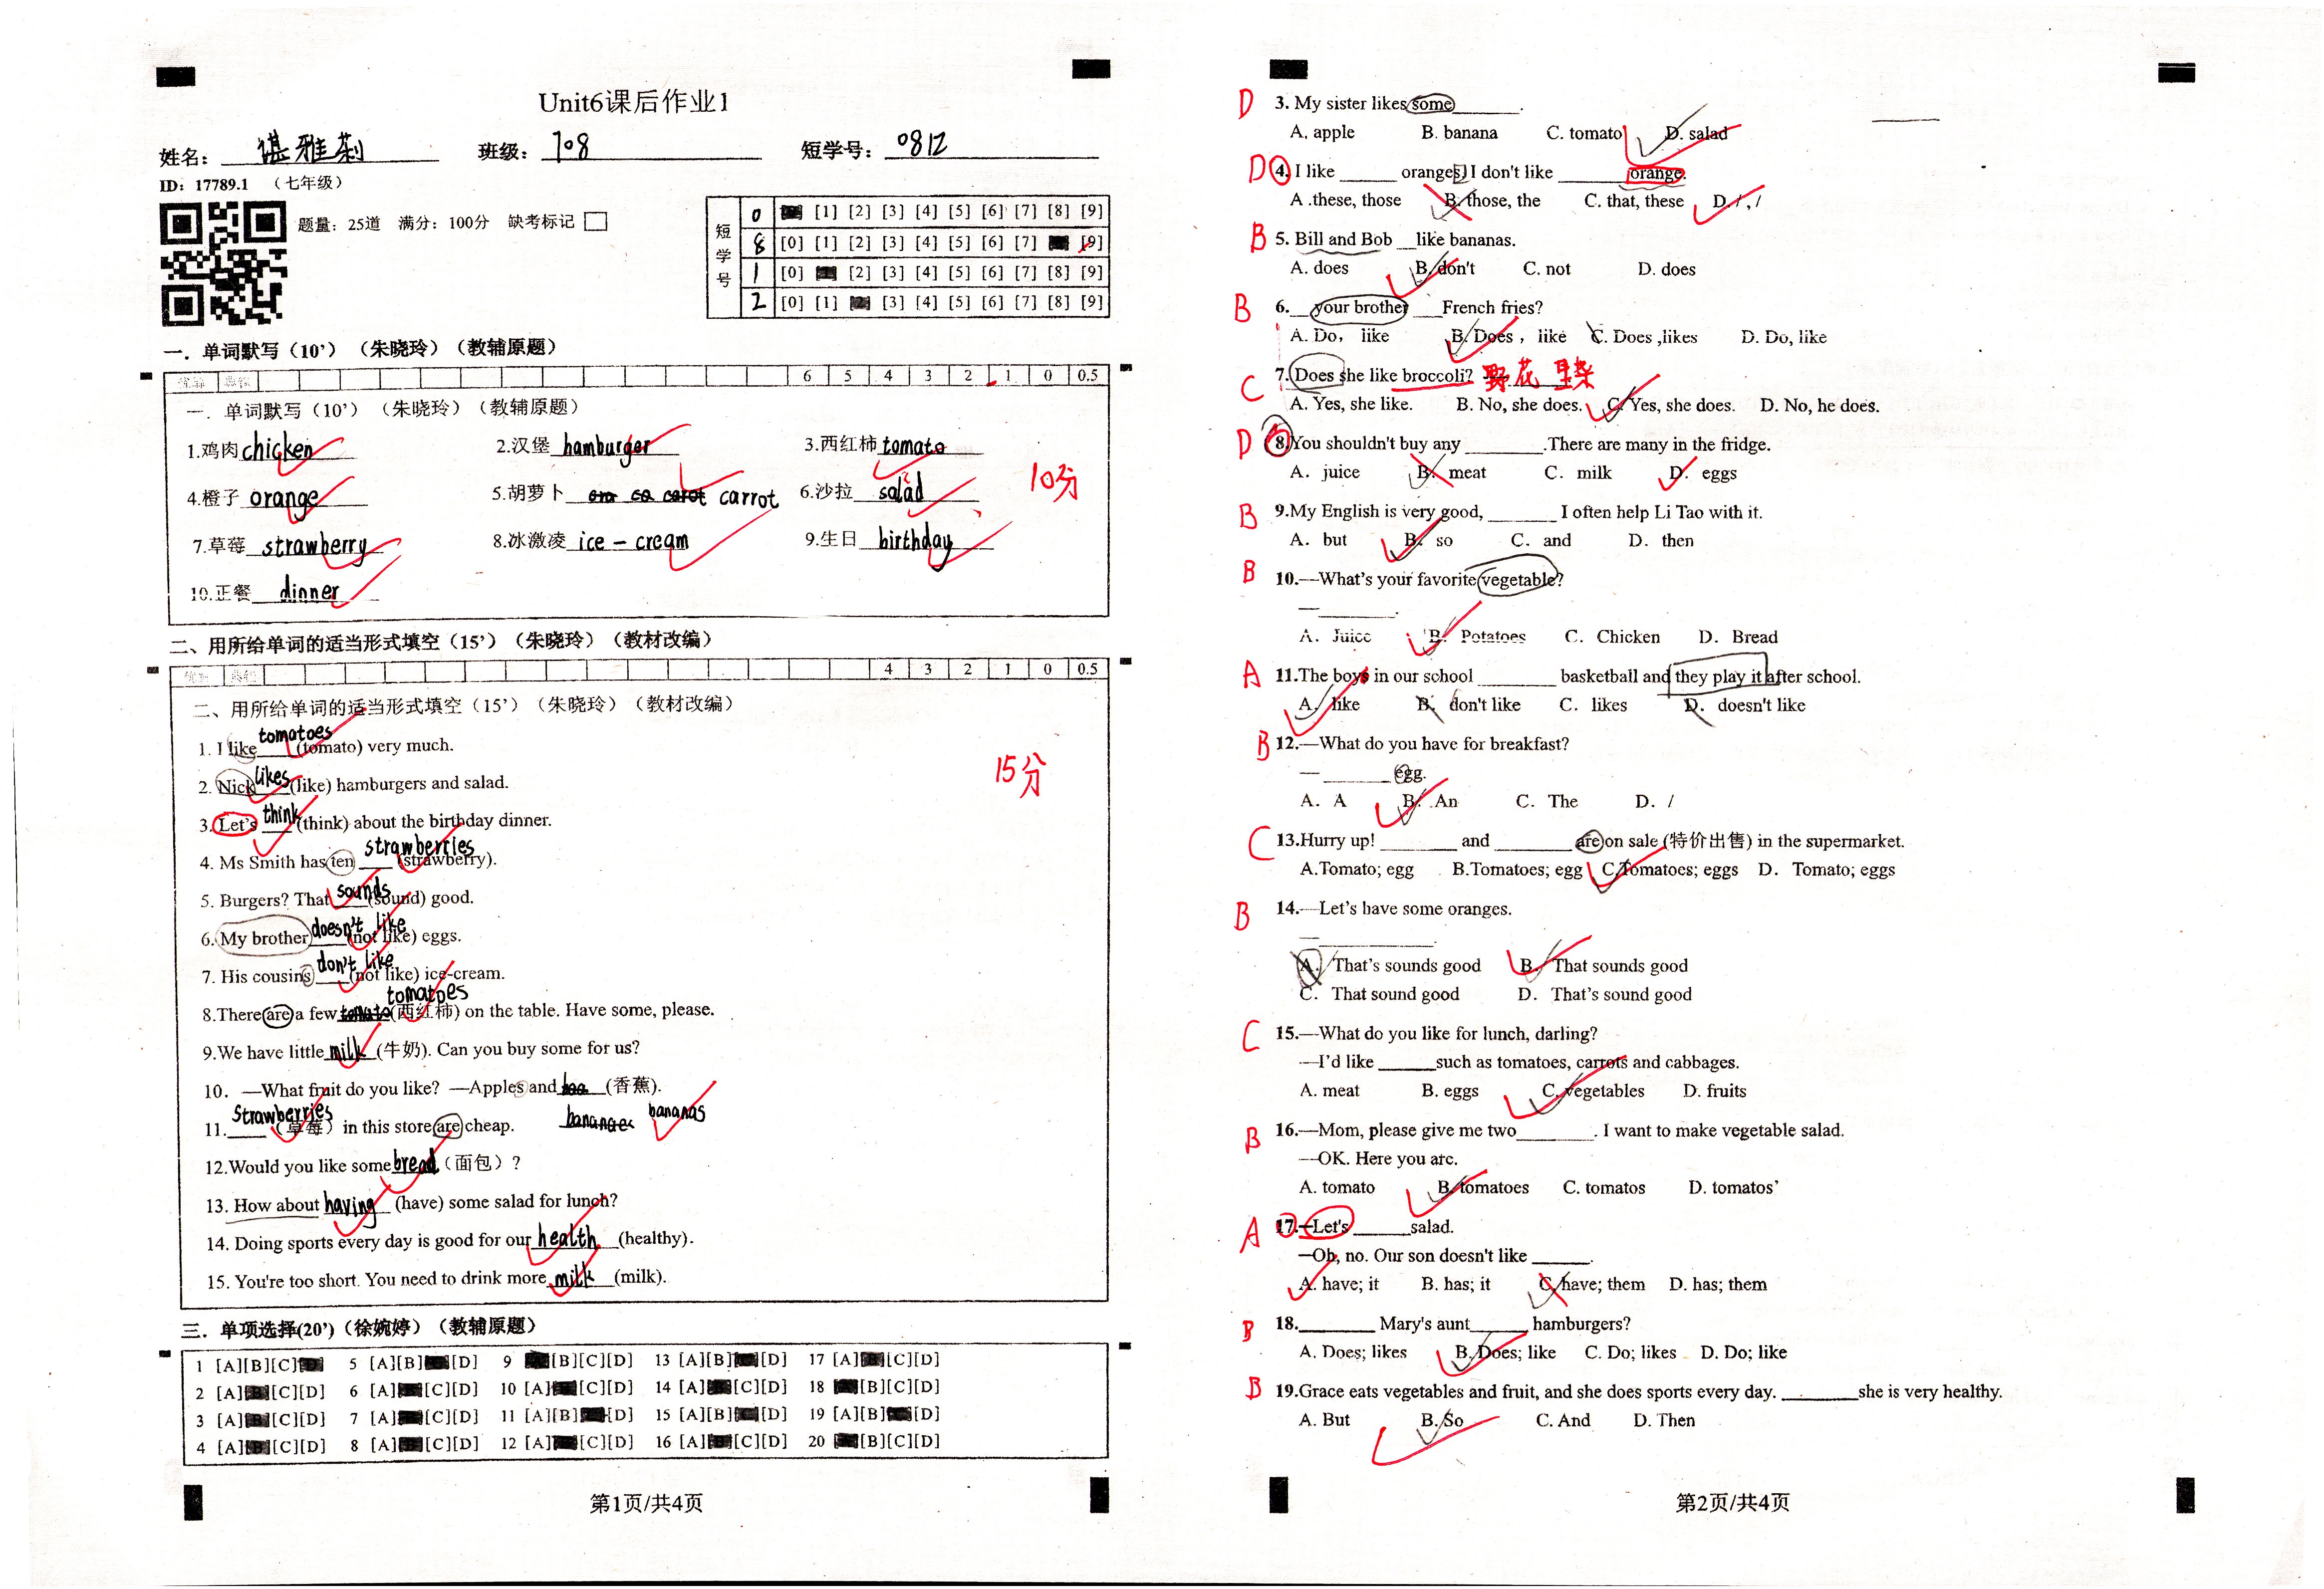 Unit6课后作业1
姓名： 班级：708 短学号：0812
ID：17789.1 （七年级）
题量：25道 满分：100分 缺考标记
短学号
0 [1] [2] [3] [4] [5] [6] [7] [8] [9]
8 [0] [1] [2] [3] [4] [5] [6] [7] [9]
1 [0] [2] [3] [4] [5] [6] [7] [8] [9]
2 [0] [1] [3] [4] [5] [6] [7] [8] [9]
一．单词默写（10’）（朱晓玲）（教辅原题）
6 5 4 3 2 1 0 0.5
一．单词默写（10’）（朱晓玲）（教辅原题）
1.鸡肉 chicken 2.汉堡 hamburger 3.西红柿 tomato
4.橙子 orange 5.胡萝卜 carrot 6.沙拉 salad
10分
7.草莓 strawberry 8.冰激凌 ice-cream 9.生日 birthday
10.正餐 dinner
二、用所给单词的适当形式填空（15’）（朱晓玲）（教材改编）
4 3 2 1 0 0.5
二、用所给单词的适当形式填空（15’）（朱晓玲）（教材改编）
1. I like tomatoes (tomato) very much.
15分
2. Nick likes (like) hamburgers and salad.
3. Let's think (think) about the birthday dinner.
4. Ms Smith has ten strawberries (strawberry).
5. Burgers? That sounds (sound) good.
6. My brother doesn't like (not like) eggs.
7. His cousins don't like (not like) ice-cream.
8.There are a few tomatoes (西红柿) on the table. Have some, please.
9.We have little milk (牛奶). Can you buy some for us?
10. —What fruit do you like? —Apples and bananas (香蕉).
11. Strawberries （草莓）in this store are cheap.
12.Would you like some bread（面包）?
13. How about having (have) some salad for lunch?
14. Doing sports every day is good for our health (healthy).
15. You're too short. You need to drink more milk (milk).
三．单项选择(20’)（徐婉婷）（教辅原题）
1 [A][B][C] 5 [A][B][D] 9 [B][C][D] 13 [A][B][D] 17 [A][C][D]
2 [A][C][D] 6 [A][C][D] 10 [A][C][D] 14 [A][C][D] 18 [B][C][D]
3 [A][C][D] 7 [A][C][D] 11 [A][B][D] 15 [A][B][D] 19 [A][B][D]
4 [A][C][D] 8 [A][C][D] 12 [A][C][D] 16 [A][C][D] 20 [B][C][D]
第1页/共4页
D 3. My sister likes some ______.
A. apple B. banana C. tomato D. salad
D 4. I like ______ oranges, I don't like ______ orange.
A .these, those B. those, the C. that, these D. / , /
B 5. Bill and Bob __like bananas.
A. does B. don't C. not D. does
B 6.__your brother __French fries?
A. Do, like B. Does , like C. Does ,likes D. Do, like
C 7. Does she like broccoli? 野花
A. Yes, she like. B. No, she does. C. Yes, she does. D. No, he does.
D 8.You shouldn't buy any ________.There are many in the fridge.
A. juice B. meat C. milk D. eggs
B 9.My English is very good, _______ I often help Li Tao with it.
A. but B. so C. and D. then
B 10.—What's your favorite vegetable?
— ________.
A. Juice B. Potatoes C. Chicken D. Bread
A 11.The boys in our school ________ basketball and they play it after school.
A. like B. don't like C. likes D. doesn't like
B 12.—What do you have for breakfast?
— _______ egg.
A. A B. An C. The D. /
C 13.Hurry up! ________ and ________ are on sale (特价出售) in the supermarket.
A.Tomato; egg B.Tomatoes; egg C.Tomatoes; eggs D. Tomato; eggs
B 14.—Let's have some oranges.
—____________.
A. That's sounds good B. That sounds good
C. That sound good D. That's sound good
C 15.—What do you like for lunch, darling?
—I'd like ______such as tomatoes, carrots and cabbages.
A. meat B. eggs C. vegetables D. fruits
B 16.—Mom, please give me two________. I want to make vegetable salad.
—OK. Here you are.
A. tomato B. tomatoes C. tomatos D. tomatos'
A 17.—Let's ______salad.
—Oh, no. Our son doesn't like ______.
A. have; it B. has; it C. have; them D. has; them
B 18.________ Mary's aunt______ hamburgers?
A. Does; likes B. Does; like C. Do; likes D. Do; like
B 19.Grace eats vegetables and fruit, and she does sports every day. ________she is very healthy.
A. But B. So C. And D. Then
第2页/共4页